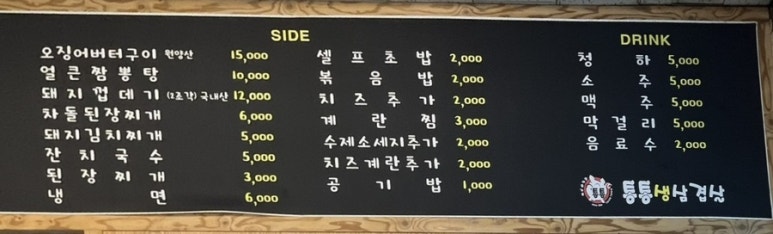 SIDE
오징어버터구이 원양산 15,000
얼큰짬뽕탕 10,000
돼지껍데기 (2조각) 국내산 12,000
차돌된장찌개 6,000
돼지김치찌개 5,000
잔치국수 5,000
된장찌개 3,000
냉면 6,000
셀프초밥 2,000
볶음밥 2,000
치즈추가 2,000
계란찜 3,000
수제소세지추가 2,000
치즈계란추가 2,000
공기밥 1,000
DRINK
청하 5,000
소주 5,000
맥주 5,000
막걸리 5,000
음료수 2,000
통통생삼겹살